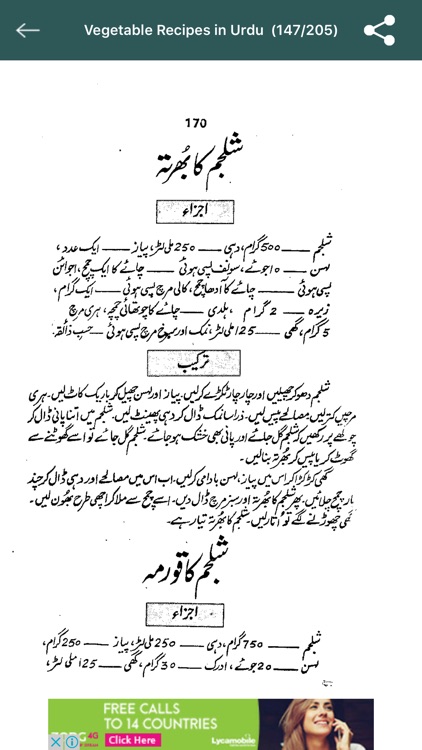 Vegetable Recipes in Urdu (147/205)
170
شلجم کا بھُرتہ
اجزاء
شلجم —— 500 گرام، دہی —— 250 ملی لٹر، پیاز —— ایک عدد،
لہسن —— 10 جوئے، سونف پسی ہوئی —— چائے کا ایک چمچ، اجوائن
پسی ہوئی —— چائے کا آدھا چمچ، کالی مرچ پسی ہوئی —— ایک گرام،
زیرہ —— 2 گرام، ہلدی —— چائے کا چوتھائی چمچہ، ہری مرچ
5 گرام، گھی —— 125 ملی لٹر، نمک اور سرخ مرچ پسی ہوئی —— حسب ذائقہ
ترکیب
شلجم دھو کر چھیلیں اور چار چار ٹکڑے کرلیں۔ پیاز اور لہسن چھیل کر باریک کاٹ لیں۔ ہری
مرچیں کتر لیں، مصالحے پیس لیں۔ ذرا سا نمک ڈال کر دہی پھینٹ لیں۔ شلجم میں اتنا پانی ڈال کر
چولھے پر رکھیں کہ شلجم گل جائے اور پانی بھی خشک ہو جائے۔ شلجم گل جائے تو اسے گھوٹنے سے
گھوٹ کر یا پیس کر بھُرتہ بنالیں۔
گھی کڑکڑا کر اس میں پیاز، لہسن بادامی کرلیں۔ اب اس میں مصالحے اور دہی ڈال کر چند
بار چمچ چلائیں۔ پھر شلجم کا بھُرتہ اور سبز مرچ ڈال دیں۔ اسے چمچ سے ملا کر اچھی طرح بھُون لیں۔
گھی چھوڑنے لگے تو اتار لیں۔ شلجم کا بھُرتہ تیار ہے۔
شلجم کا قورمہ
اجزاء
شلجم —— 750 گرام، دہی —— 250 ملی لٹر، پیاز —— 250 گرام،
لہسن —— 20 جوئے، ادرک —— 30 گرام، گھی —— 125 ملی لٹر،
FREE CALLS
TO 14 COUNTRIES
4G
Click Here
Lycamobile